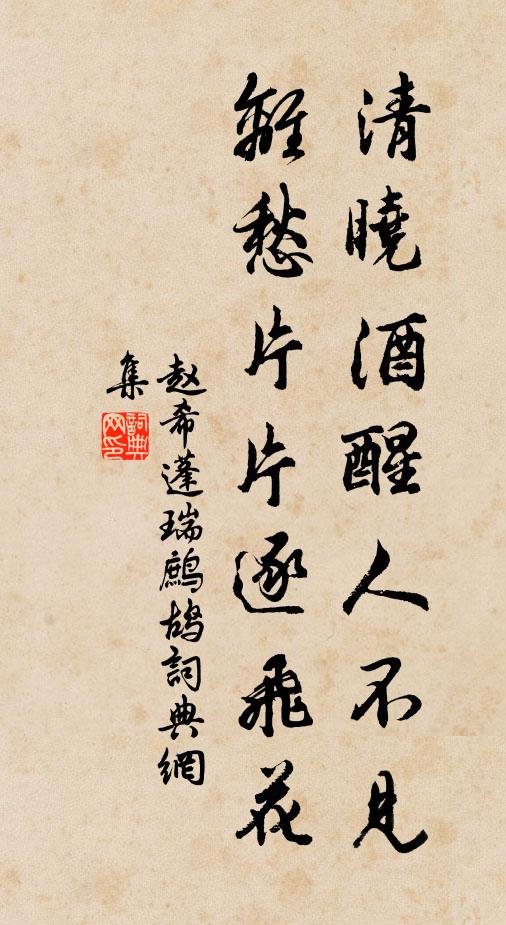 清曉酒醒人不見
離愁片片逐飛花
赵希蓬瑞鷓鴣詞典網
集
詞典网印